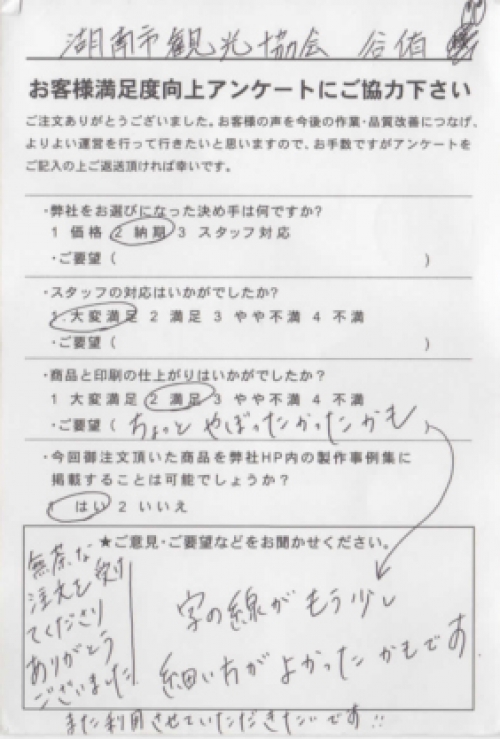 湖南市観光協会 谷 佑
お客様満足度向上アンケートにご協力下さい
ご注文ありがとうございました。お客様の声を今後の作業・品質改善につなげ、
よりよい運営を行って行きたいと思いますので、お手数ですがアンケートを
ご記入の上ご返送頂ければ幸いです。
・弊社をお選びになった決め手は何ですか?
1 価格 2 納期 3 スタッフ対応
・ご要望 ( )
・スタッフの対応はいかがでしたか?
1 大変満足 2 満足 3 やや不満 4 不満
・ご要望 ( )
・商品と印刷の仕上がりはいかがでしたか?
1 大変満足 2 満足 3 やや不満 4 不満
・ご要望 ( ちょっと やぼったかったかも )
・今回御注文頂いた商品を弊社HP内の製作事例集に
掲載することは可能でしょうか?
1 はい 2 いいえ
★ご意見・ご要望などをお聞かせください。
無茶な
注文を受け
てくださり
ありがとう
ございました
字の線がもう少し
細い方がよかったかもです
また利用させていただきたいです!!